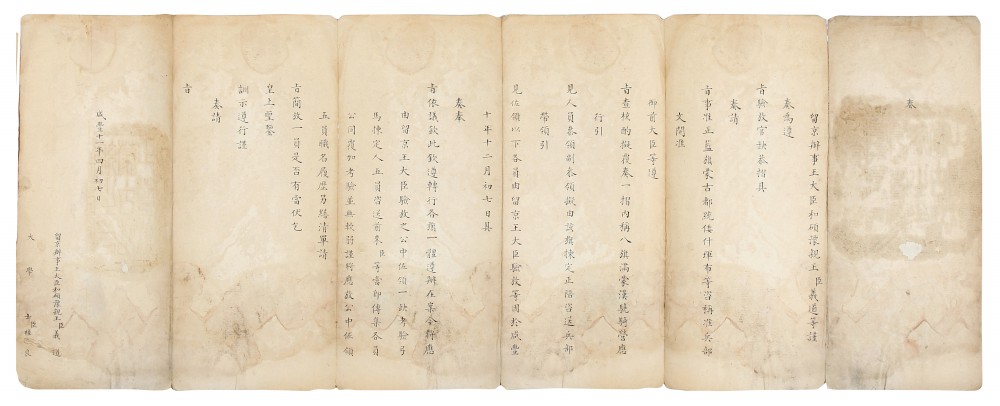 奏
留京辦事王大臣和碩豫親王臣義道等謹
奏為遵
旨驗放官缺恭摺具
奏請
旨事准正藍旗蒙古都統倭什琿布等咨稱准兵部
文開准
御前大臣等遵
旨查核酌擬覆奏一摺內稱八旗滿蒙漢驍騎營應
行引
見人員參領副參領擬由該旗揀定正陪咨送兵部
帶領引
見佐領以下各員由留京王大臣驗放等因於咸豐
十年十二月初七日具
奏奉
旨依議欽此欽遵轉行各旗一體遵辦在案今輪應
由留京王大臣驗放之公中佐領一缺考驗弓
馬揀定人五員咨送前來臣等當即傳集各員
公同覆加考驗並無弱謹將應放公中佐領
五員職名履歷另繕清單請
旨簡放一員是否有當伏乞
皇上聖鑒
訓示遵行謹
奏請
旨
咸豐十一年四月初七日
留京辦事王大臣和碩豫親王臣義道
大學士臣桂良